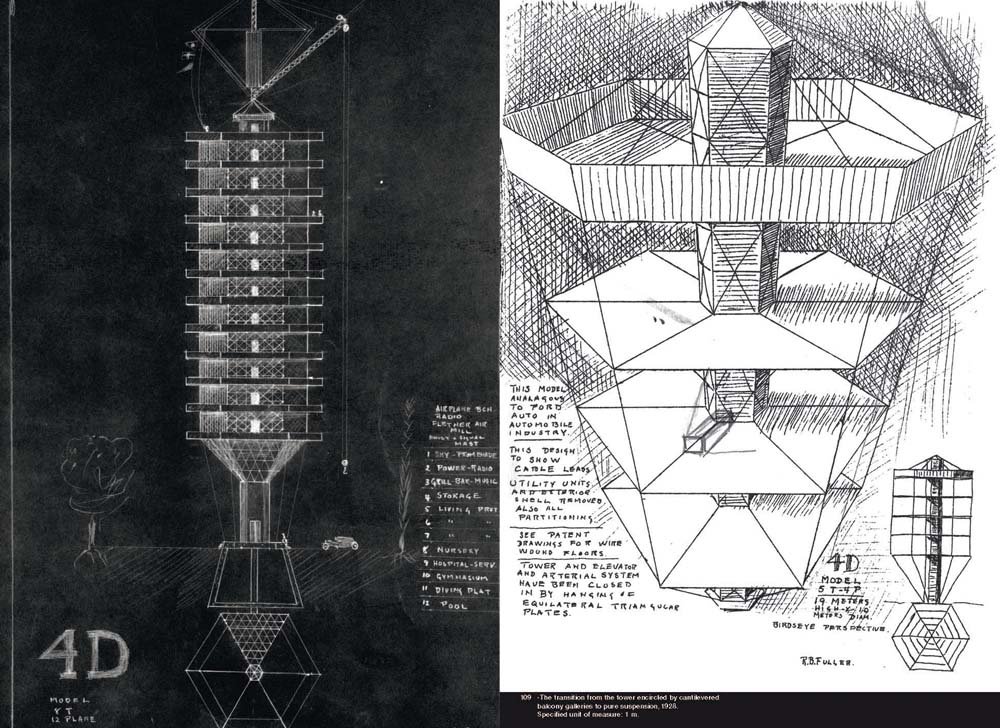 AIRPLANE BCN.
RADIO
FLETNER AIR
MILL
MAST
1 SKY-PROMENADE
2 POWER-RADIO
3 GRILL-BAR-MUSIC
4 STORAGE
5 LIVING PRVT
6 " "
7 " "
8 NURSERY
9 HOSPITAL-SERV.
10 GYMNASIUM
11 DIVING PLAT
12 POOL
4D
MODEL
12 PLANE
THIS MODEL
ANALAGOUS
TO FORD
AUTO IN
AUTOMOBILE
INDUSTRY.
THIS DESIGN
TO SHOW
CABLE LEADS
UTILITY UNITS
AND EXTERIOR
SHELL REMOVED
ALSO ALL
PARTITIONING.
SEE PATENT
DRAWINGS FOR WIRE
WOUND FLOORS.
TOWER AND ELEVATOR
AND ARTERIAL SYSTEM
HAVE BEEN CLOSED
IN BY HANGING OF
EQUILATERAL TRIANGULAR
PLATES.
4D
MODEL
5T-4P
19 METERS
HIGH-X-10
METERS DIAM.
BIRDSEYE PERSPECTIVE.
R.B.FULLER.
109 -The transition from the tower encircled by cantilevered
balcony galleries to pure suspension, 1928.
Specified unit of measure: 1 m.